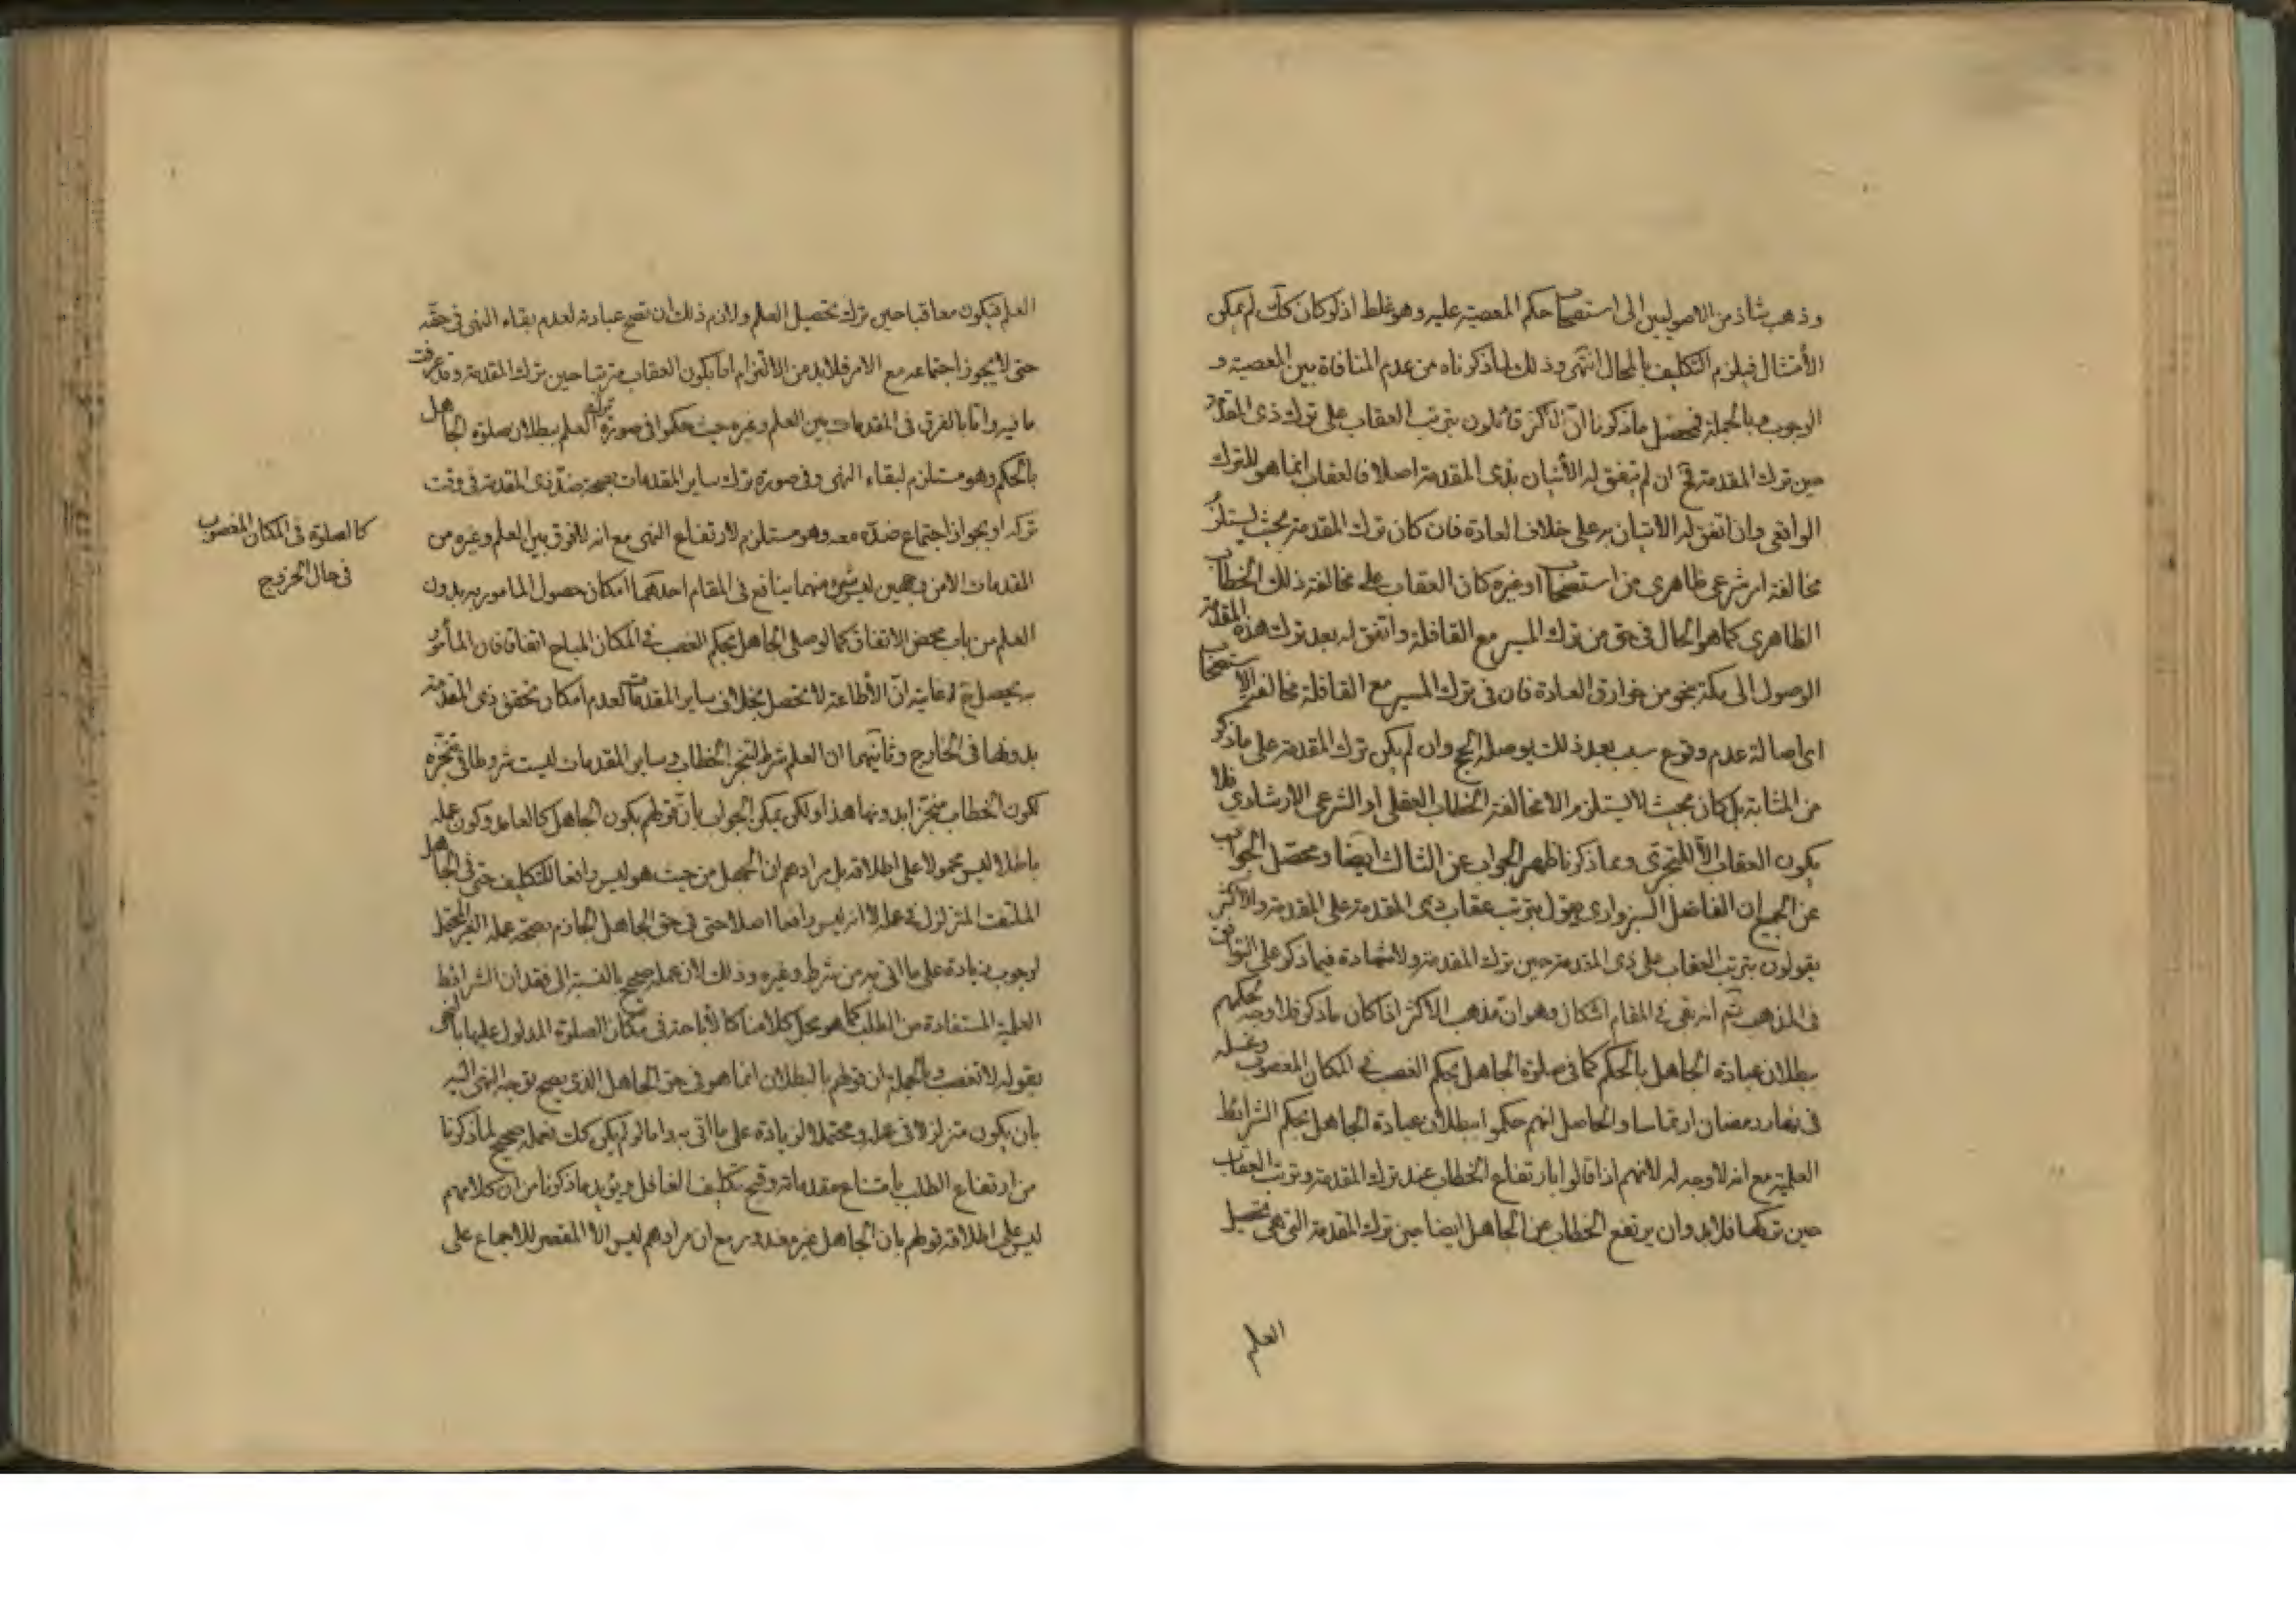 وذهب شاذ من الاصوليين الى استصحاب حكم المعصية عليه وهو غلط اذ لو كان كك لم يمكن
الأمتثال فيلزم التكليف بالمحال انتهى وذلك لما ذكرناه من عدم المنافاة بين المعصية و
الوجوب وبالجملة فمحصل ما ذكرنا انّ الاكثر قائلون بترتب العقاب على ترك ذى المقدمة
حين ترك المقدمة فح ان لم يتفق له الأتيان بذى المقدمة اصلا فالعقاب انما هو للترك
الواقعى وان اتفق له الاتيان به على خلاف العادة فان كان ترك المقدمة بحيث يستلزم
مخالفة امر شرعى ظاهرى من استصحاب او غيره كان العقاب على مخالفة ذلك الخطاب
الظاهرى كما هو الحال فى حق من ترك المسير مع القافلة واتفق له بعد ترك هذه المقدمة
الوصول الى مكة بنحو من خوارق العادة فان فى ترك المسير مع القافلة مخالفة الاستصحاب
اى اصالة عدم وقوع سبب بعد ذلك يوصله الحج وان لم يكن ترك المقدمة على ما ذكر
من المثابة بل كان بحيث لا يستلزم الا مخالفة الخطاب العقلى او الشرعى الارشادى فلا
يكون العقاب الاّ للتجرى ومما ذكرنا ظهر الجواب عن الثالث ايضا ومحصّل الجواب
عن الجميع ان الفاضل السبزوارى يقول بترتب عقاب ذى المقدمة على المقدمة والاكثر
يقولون بترتب العقاب على ذى المقدمة حين ترك المقدمة ولا شهادة فيما ذكر على التوافق
فى المذهب ثم انه بقى فى المقام اشكال وهو ان مذهب الاكثر اذا كان ما ذكر فلا وجه لحكمهم
ببطلان عبادة الجاهل بالحكم كما فى صلوة الجاهل بحكم الغصب فى المكان المغصوب وغسله
فى نهار رمضان ارتماسا والحاصل انهم حكموا ببطلان عبادة الجاهل بحكم الشرائط
العلمية مع انه لا وجه له لانهم اذا قالوا بارتفاع الخطاب عند ترك المقدمة وترتب العقاب
حين تركها فلا بد وان يرتفع الخطاب عن الجاهل ايضا حين ترك المقدمة التى هى تحصيل
العلم
العلم فيكون معاقبا حين ترك تحصيل العلم ولازم ذلك ان تصح عبادته لعدم بقاء النهى فى حقه
حتى لا يجوز اجتماعه مع الامر فلا بد من الالتزام اما بكون العقاب مترتبا حين ترك المقدمة وقد عرفت
ما فيه واما بالفرق فى المقدمات بين العلم وغيره حيث حكموا فى صورة ترك العلم ببطلان صلوة الجاهل
بالحكم وهو مستلزم لبقاء النهى وفى صورة ترك ساير المقدمات بصحة ضدّ ذى المقدمة فى وقت
تركه او بجواز اجتماع ضدّه معه وهو مستلزم لارتفاع النهى مع انه لا فرق بين العلم وغيره من
المقدمات الا من وجهين ليس شئ منهما بنافع فى المقام احدهما امكان حصول المامور به بدون
العلم من باب محض الاتفاق كما لو صلى الجاهل بحكم الغصب فى المكان المباح اتفاقا فان المأمور
به يحصل ح غايته انّ الأطاعة لا تحصل بخلاف ساير المقدمات لعدم امكان تحقق ذى المقدمة
بدونها فى الخارج وثانيهما ان العلم شرط لتنجز الخطاب وساير المقدمات ليست شروطا فى تنجّزه
لكون الخطاب منجزا بدونها هذا ولكن يمكن الجواب بان قولهم بكون الجاهل كالعامد وكون عمله
باطلا ليس محمولا على اطلاقه بل مرادهم ان الجهل من حيث هو ليس رافعا للتكليف حتى فى الجاهل
الملتفت المتزلزل فى عمله لا انه ليس رافعا اصلا حتى فى حق الجاهل الجازم بصحة عمله الغير المحتمل
لوجوب زيادة على ما اتى به من شرط وغيره وذلك لان عمله صحيح بالنسبة الى فقدان الشرائط
العلمية المستفادة من الطلب كما هو محل كلامنا كالأباحة فى مكان الصلوة المدلول عليها بالنهى
بقوله لا تغصب وبالجملة ان قولهم بالبطلان انما هو فى حق الجاهل الذى يصح توجه النهى اليه
بان يكون متزلزلا فى عمله ومحتملا لزيادة على ما اتى به واما لو لم يكن كك فعمله صحيح لما ذكرنا
من ارتفاع الطلب بامتناع مقدماته وقبح تكليف الغافل ويؤيد ما ذكرنا من ان كلامهم
ليس على اطلاقه قولهم بان الجاهل غير معذور مع ان مرادهم ليس الا المقصر للاجماع على
كالصلوة فى المكان المغصوب
فى حال الخروج